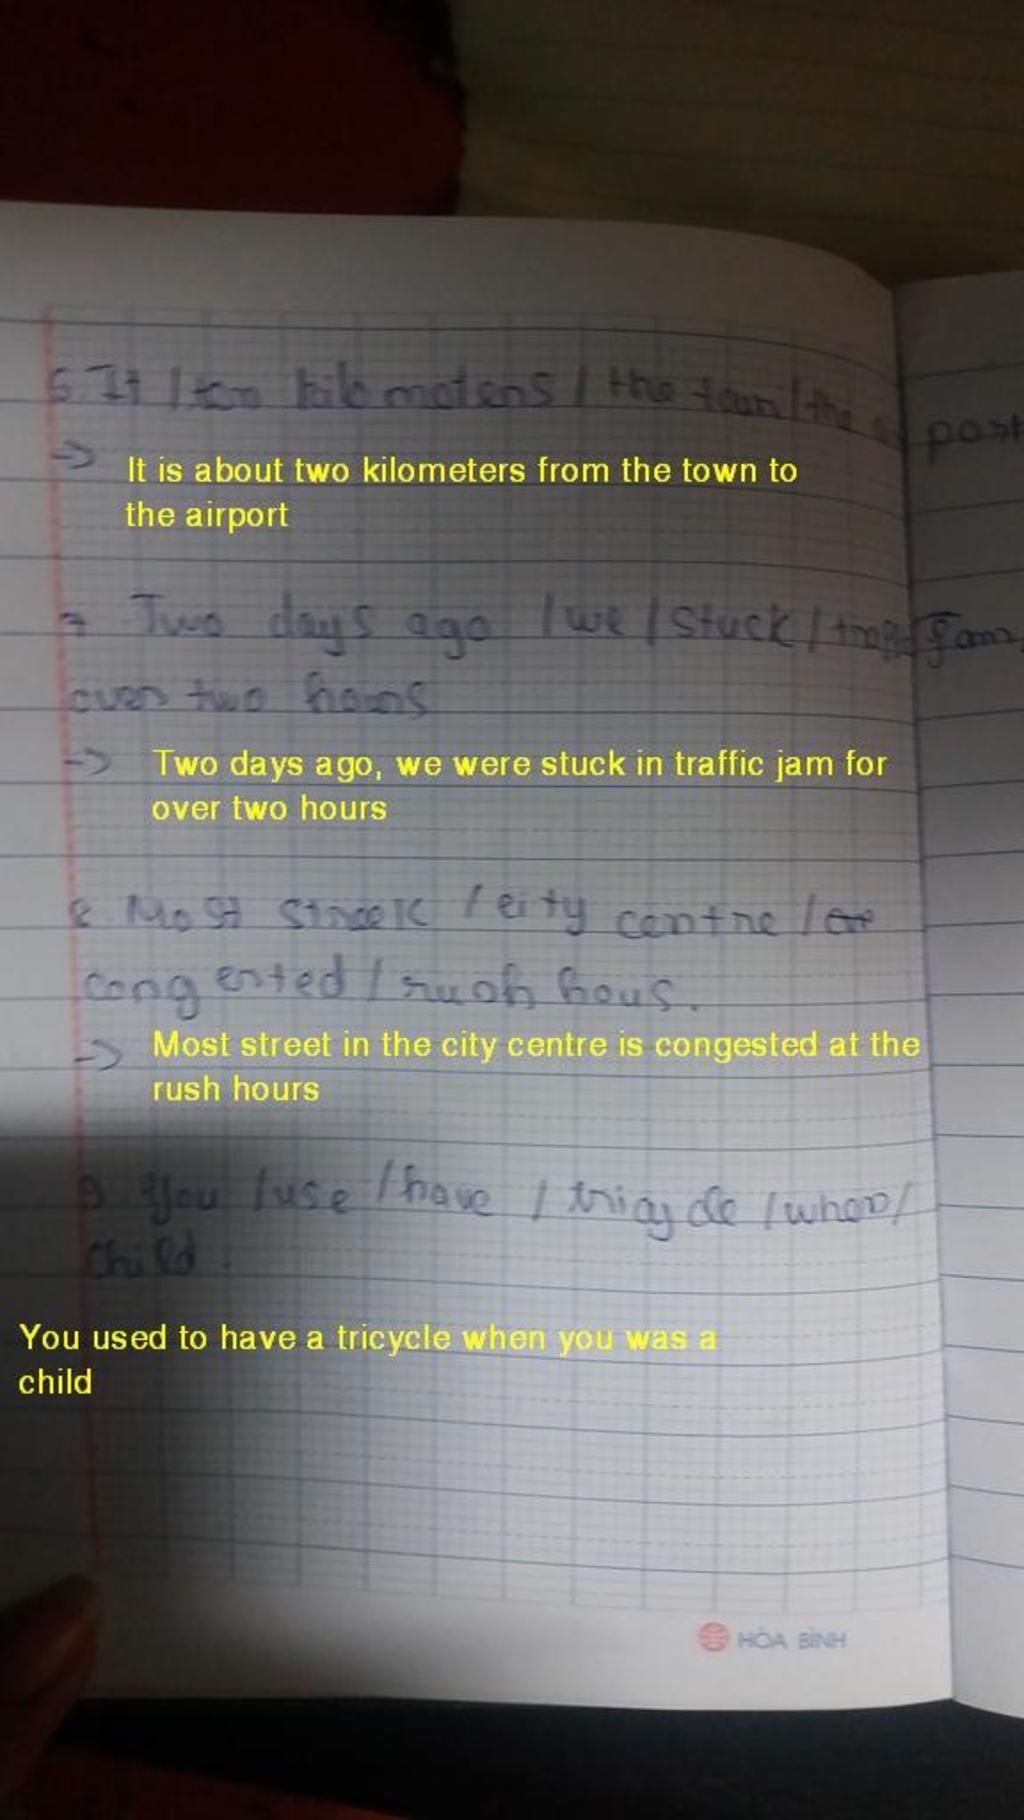 6. It / ten kilometens / the town / the
port
→
It is about two kilometers from the town to
the airport
7 Two days ago / we / stuck / traffic Jam,
over two hours
→
Two days ago, we were stuck in traffic jam for
over two hours
8. Most street / city centre /
congested / rush hous.
→
Most street in the city centre is congested at the
rush hours
9 You / use / have / tricycle / when /
child.
You used to have a tricycle when you was a
child
HÒA BÌNH